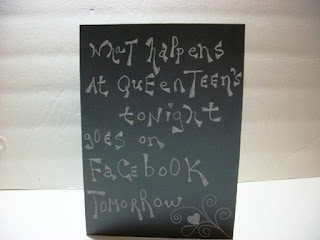 WHAT HAppENS
AT QUEENTEEN'S
toNight
goes on
FACEbOOK
TOMORROW